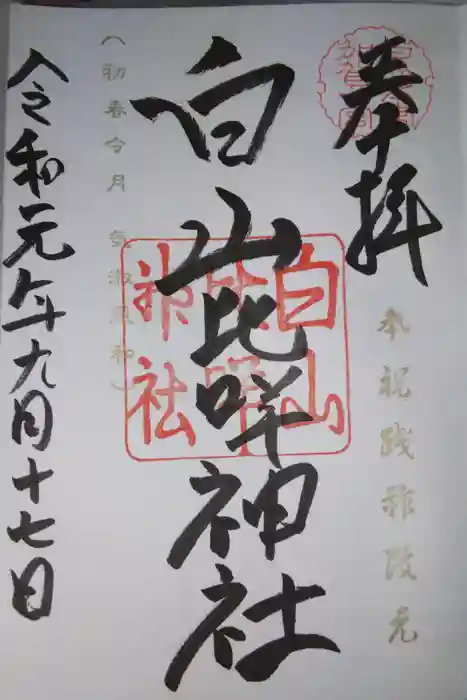 奉拝
奉祝践祚改元
白山比咩神社
白山
比咩
神社
(初春令月 気淑風和)
令和元年九月十七日